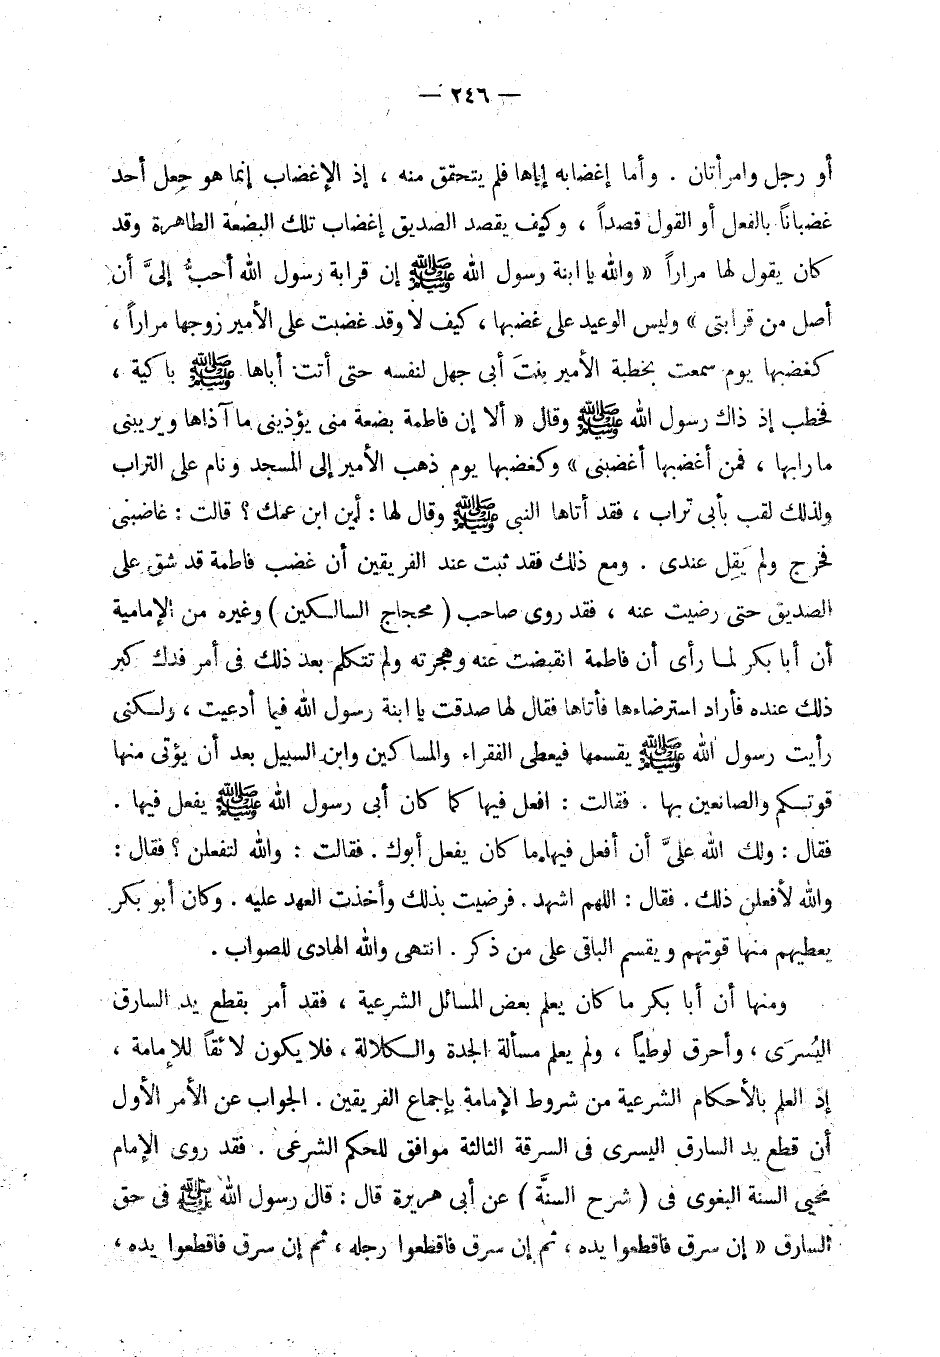 — ٢٤٦ —
أو رجل وامرأتان . وأما إغضابه إياها فلم يتحقق منه ، إذ الإغضاب إنما هو جعل أحد
غضباناً بالفعل أو القول قصداً ، وكيف يقصد الصديق إغضاب تلك البضعة الطاهرة وقد
كان يقول لها مراراً « والله يا ابنة رسول الله ﷺ إن قرابة رسول الله أحبُّ إلىَّ أن
أصل من قرابتى » وليس الوعيد على غضبها ، كيف لا وقد غضبت على الأمير زوجها مراراً ،
كغضبها يوم سمعت بخطبة الأمير بنتَ أبى جهل لنفسه حتى أتت أباها ﷺ باكية ،
فخطب إذ ذاك رسول الله ﷺ وقال « ألا إن فاطمة بضعة منى يؤذينى ما آذاها ويريبنى
ما رابها ، فمن أغضبها أغضبنى » وكغضبها يوم ذهب الأمير إلى المسجد ونام على التراب
ولذلك لقب بأبى تراب ، فقد أتاها النبى ﷺ وقال لها : أين ابن عمك ؟ قالت : غاضبنى
فخرج ولم يَقِل عندى . ومع ذلك فقد ثبت عند الفريقين أن غضب فاطمة قد شق على
الصديق حتى رضيت عنه ، فقد روى صاحب ( محجاج السالكين ) وغيره من الإمامية
أن أبا بكر لما رأى أن فاطمة انقبضت عنه وهجرته ولم تتكلم بعد ذلك فى أمر فدك كبر
ذلك عنده فأراد استرضاءها فأتاها فقال لها صدقت يا ابنة رسول الله فيما أدعيت ، ولكنى
رأيت رسول الله ﷺ يقسمها فيعطى الفقراء والمساكين وابن السبيل بعد أن يؤتى منها
قوتكم والصانعين بها . فقالت : افعل فيها كما كان أبى رسول الله ﷺ يفعل فيها .
فقال : ولك الله علىَّ أن أفعل فيها ما كان يفعل أبوك . فقالت : والله لتفعلن ؟ فقال :
والله لأفعلن ذلك . فقال : اللهم اشهد . فرضيت بذلك وأخذت العهد عليه . وكان أبو بكر
يعطيهم منها قوتهم ويقسم الباقى على من ذكر . انتهى والله الهادى للصواب .
ومنها أن أبا بكر ما كان يعلم بعض المسائل الشرعية ، فقد أمر بقطع يد السارق
اليُسرَى ، وأحرق لوطياً ، ولم يعلم مسألة الجدة والكلالة ، فلا يكون لائقاً للإمامة ،
إذ العلم بالأحكام الشرعية من شروط الإمامة بإجماع الفريقين . الجواب عن الأمر الأول
أن قطع يد السارق اليسرى فى السرقة الثالثة موافق للحكم الشرعى . فقد روى الإمام
محيى السنة البغوى فى ( شرح السنَّة ) عن أبى هريرة قال : قال رسول الله ﷺ فى حق
السارق « إن سرق فاقطعوا يده ، ثم إن سرق فاقطعوا رجله ، ثم إن سرق فاقطعوا يده ،